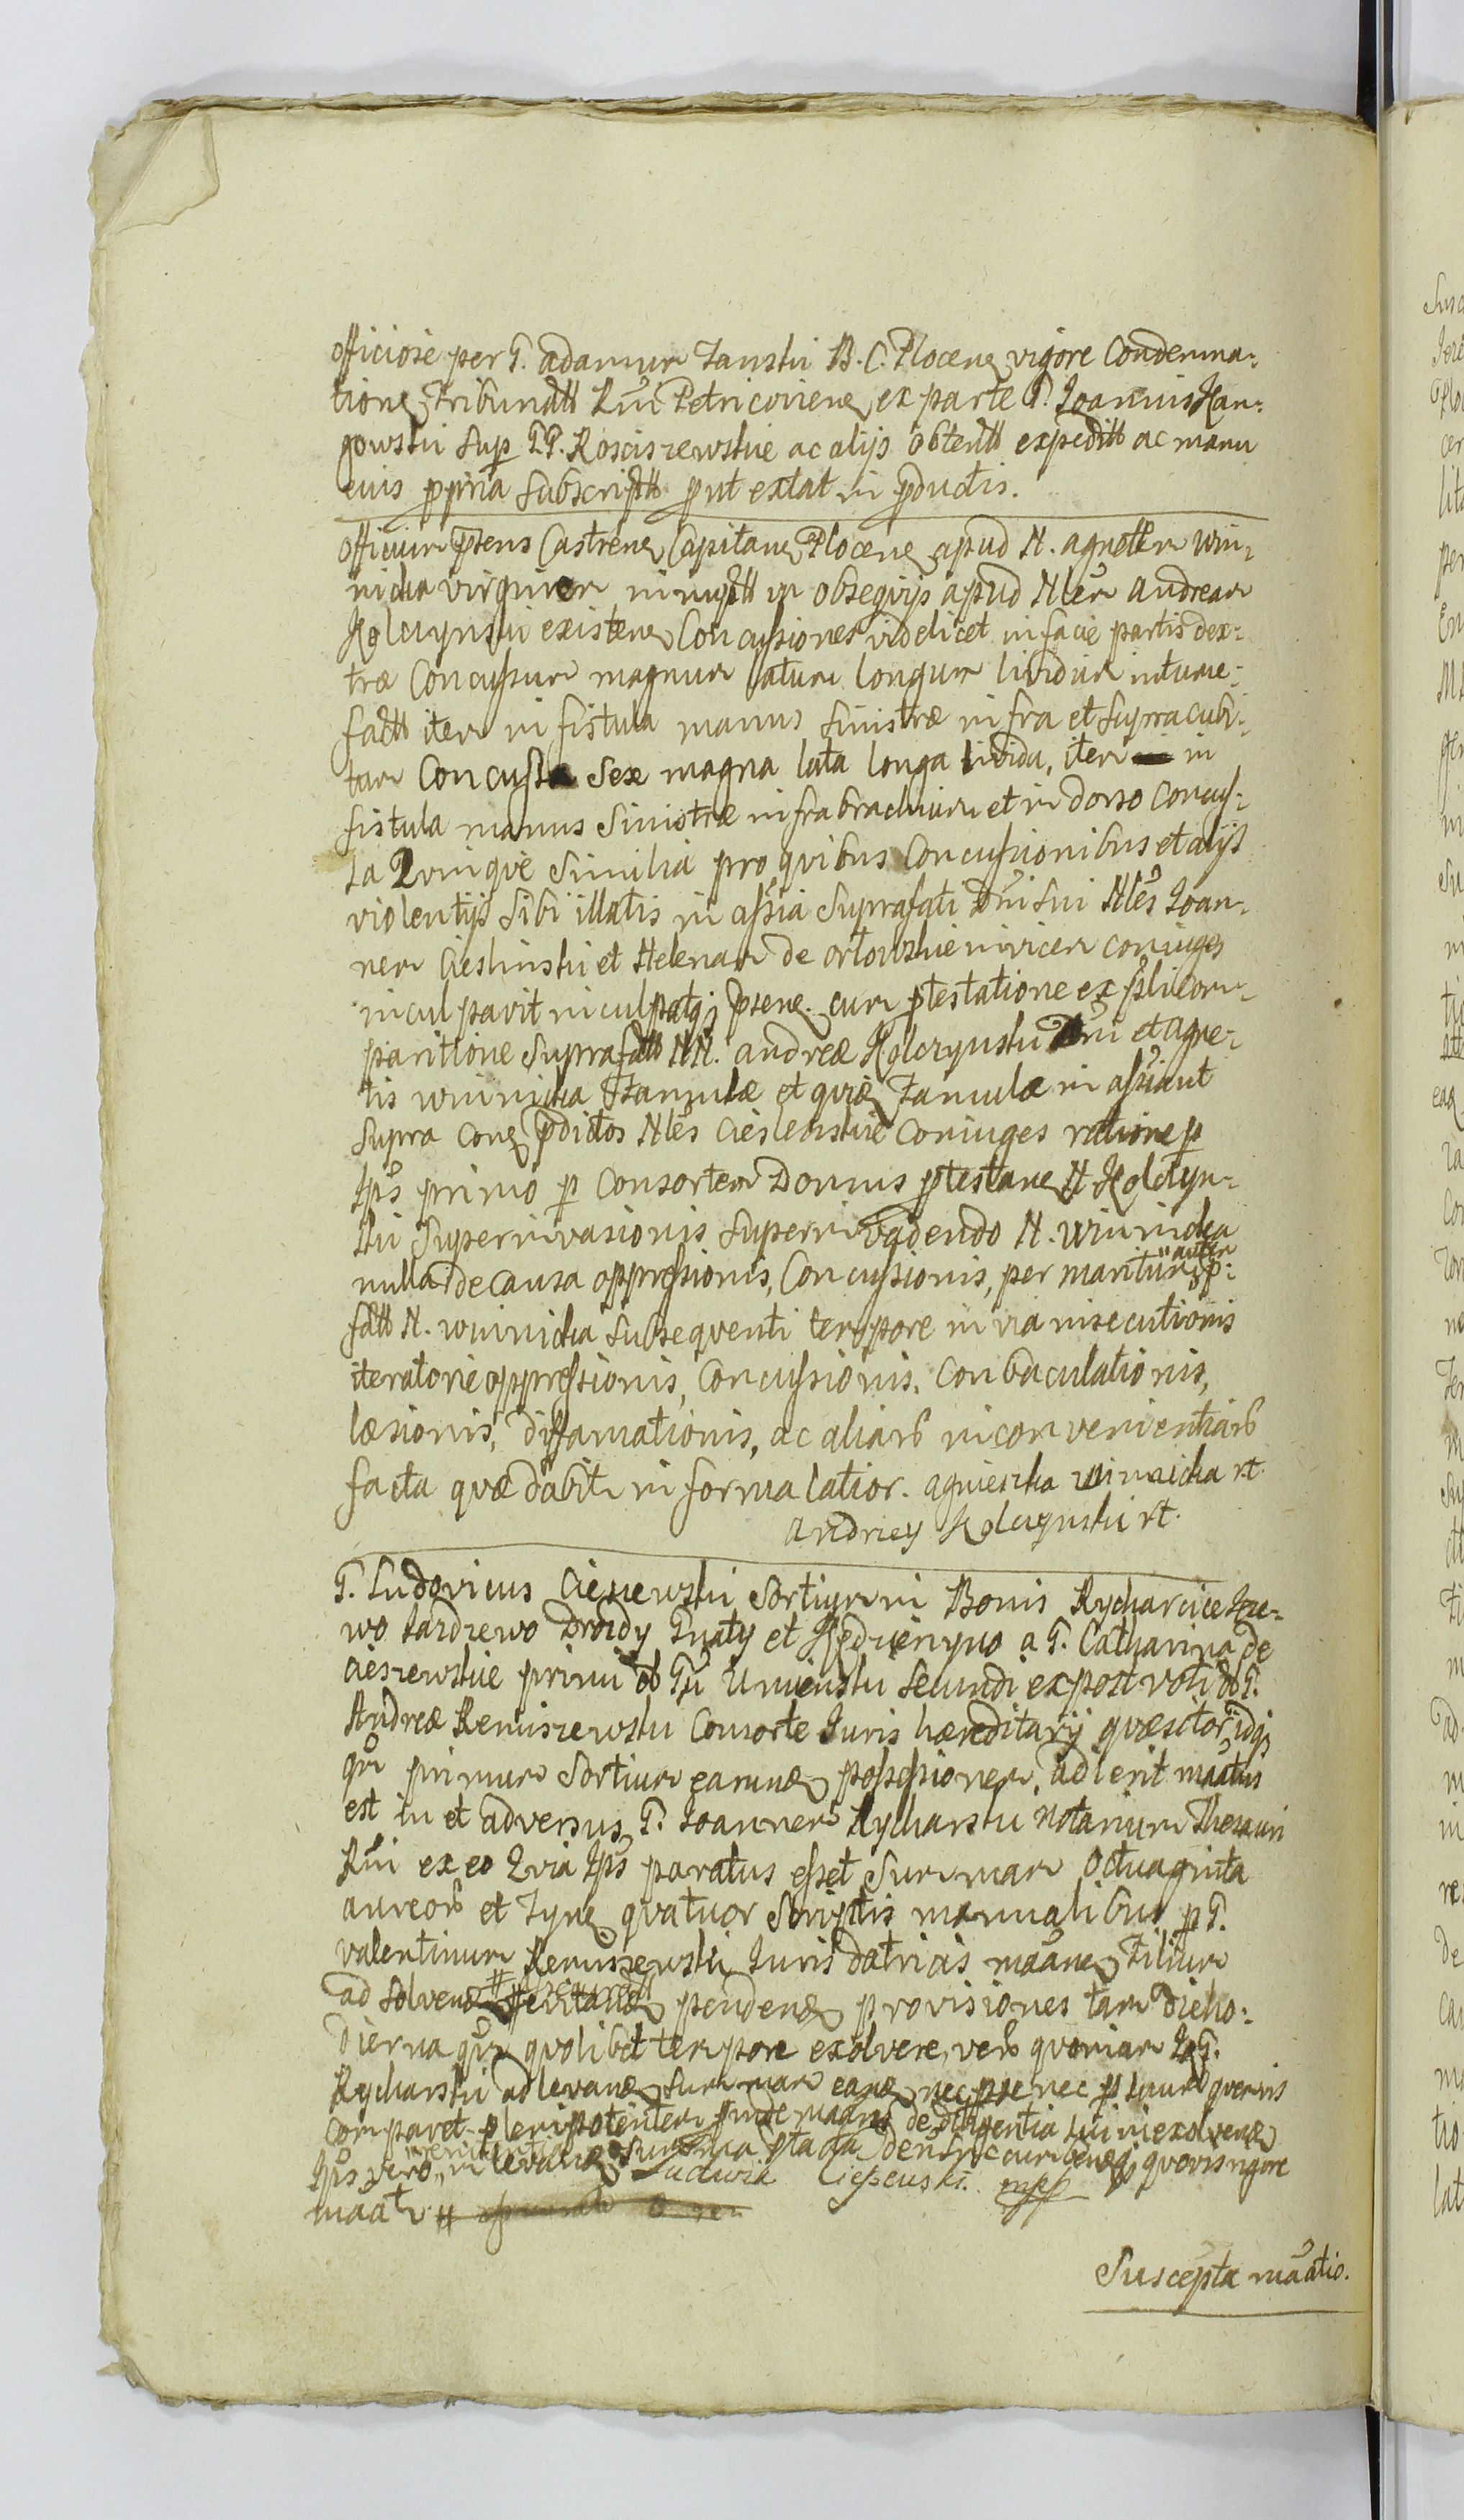 officiose per G. adamum Zanski B. C. Plocen vigore Condemna-
tione Tribunal Rñi Petricovien ex parte G. Joannis Han-
gowski sup GG. Rosciszewskie ac alijs obtent expedit ac manu
eius ppria Subscript put extat in pductis.
Officium pñens Castren Capitan Plocen apud N. agnetem Win-
nicka virginem innupt in obseqvijs apud Nlem Andream
Kolczynski existen Concussiones videlicet in facie partis dex-
træ Concussum magnum latum longum lividum intume-
fact item in fistula manus sinistræ infra et supra cubi-
tum Concussa sex magna lata longa livida, item in
fistula manus sinistræ infra brachium et in dorso Concus-
sa Qvinqve similia pro qvibus Concussionibus et alijs
violentijs sibi illatis in assia suprafati Dñi sui Nles Joan-
nem Cieslinski et Helenam de orlowskie invicem coniuges
inculpavit inculpatq psen. cum ptestatione ex pblicom-
paritione suprafatt NN. andreæ Kolczynski Dñi et agne-
tis winnicka Famulæ et qviæ Famulæ in assiant
supra Con pdictos Nles Cieslenskie Coniuges ratione p
Ips primo p Consortem Domus ptestan N Kolczyn-
ski Superinvasionis superinvadendo N. Winnicka
nulla de causa oppressionis, Concussionis, per maritum autem sp-
fatt N. winnicka subseqventi tempore in via insecutionis
iteratorie oppressionis, Concussionis, Conbaculationis,
læsionis, diffamationis, ac aliarũ inconvenientiarũ
facta qvæ dabit in forma latior. agnieszka winnicka rt.
andrzey Kolczynski rt.
G. Ludovicus Cieszewski Sortium in Bonis Rycharcice Jze-
wo Sardzewo Drozdy Gnaty et Kędzierzyno a G. Catharina de
Cieszewskie primi ol Gñi Umienski secundi ex post voti ol G.
Andreæ Remiszewski Consorte Iuris hæreditarij qvæsitor, idq
qm primum Sortium earund possessionem, adierit mãatus
est in et adversus G. Joannem Rycharski Notarium Thesauri
Rñi ex eo Qvia Ips paratus esset Summam Octuaginta
aureorũ et Tyn qvatuor Scriptis manualibus p G.
valentinum Remiszewski Iuris datricis mãan Filium
ad solven pendend provisiones tam die ho-
dierna qm qvolibet tempore exolvere, verũ qvoniam G.
Rycharski ad levand Summam eand nec p se nec p qvemvis
Comparet plenipotentem pinde de diligentia sui in exolvend
Ips vero, in levand Summa qvovis rigore
mãat
Ludwik Cieszewski. mpp
Suscepta mãatio.